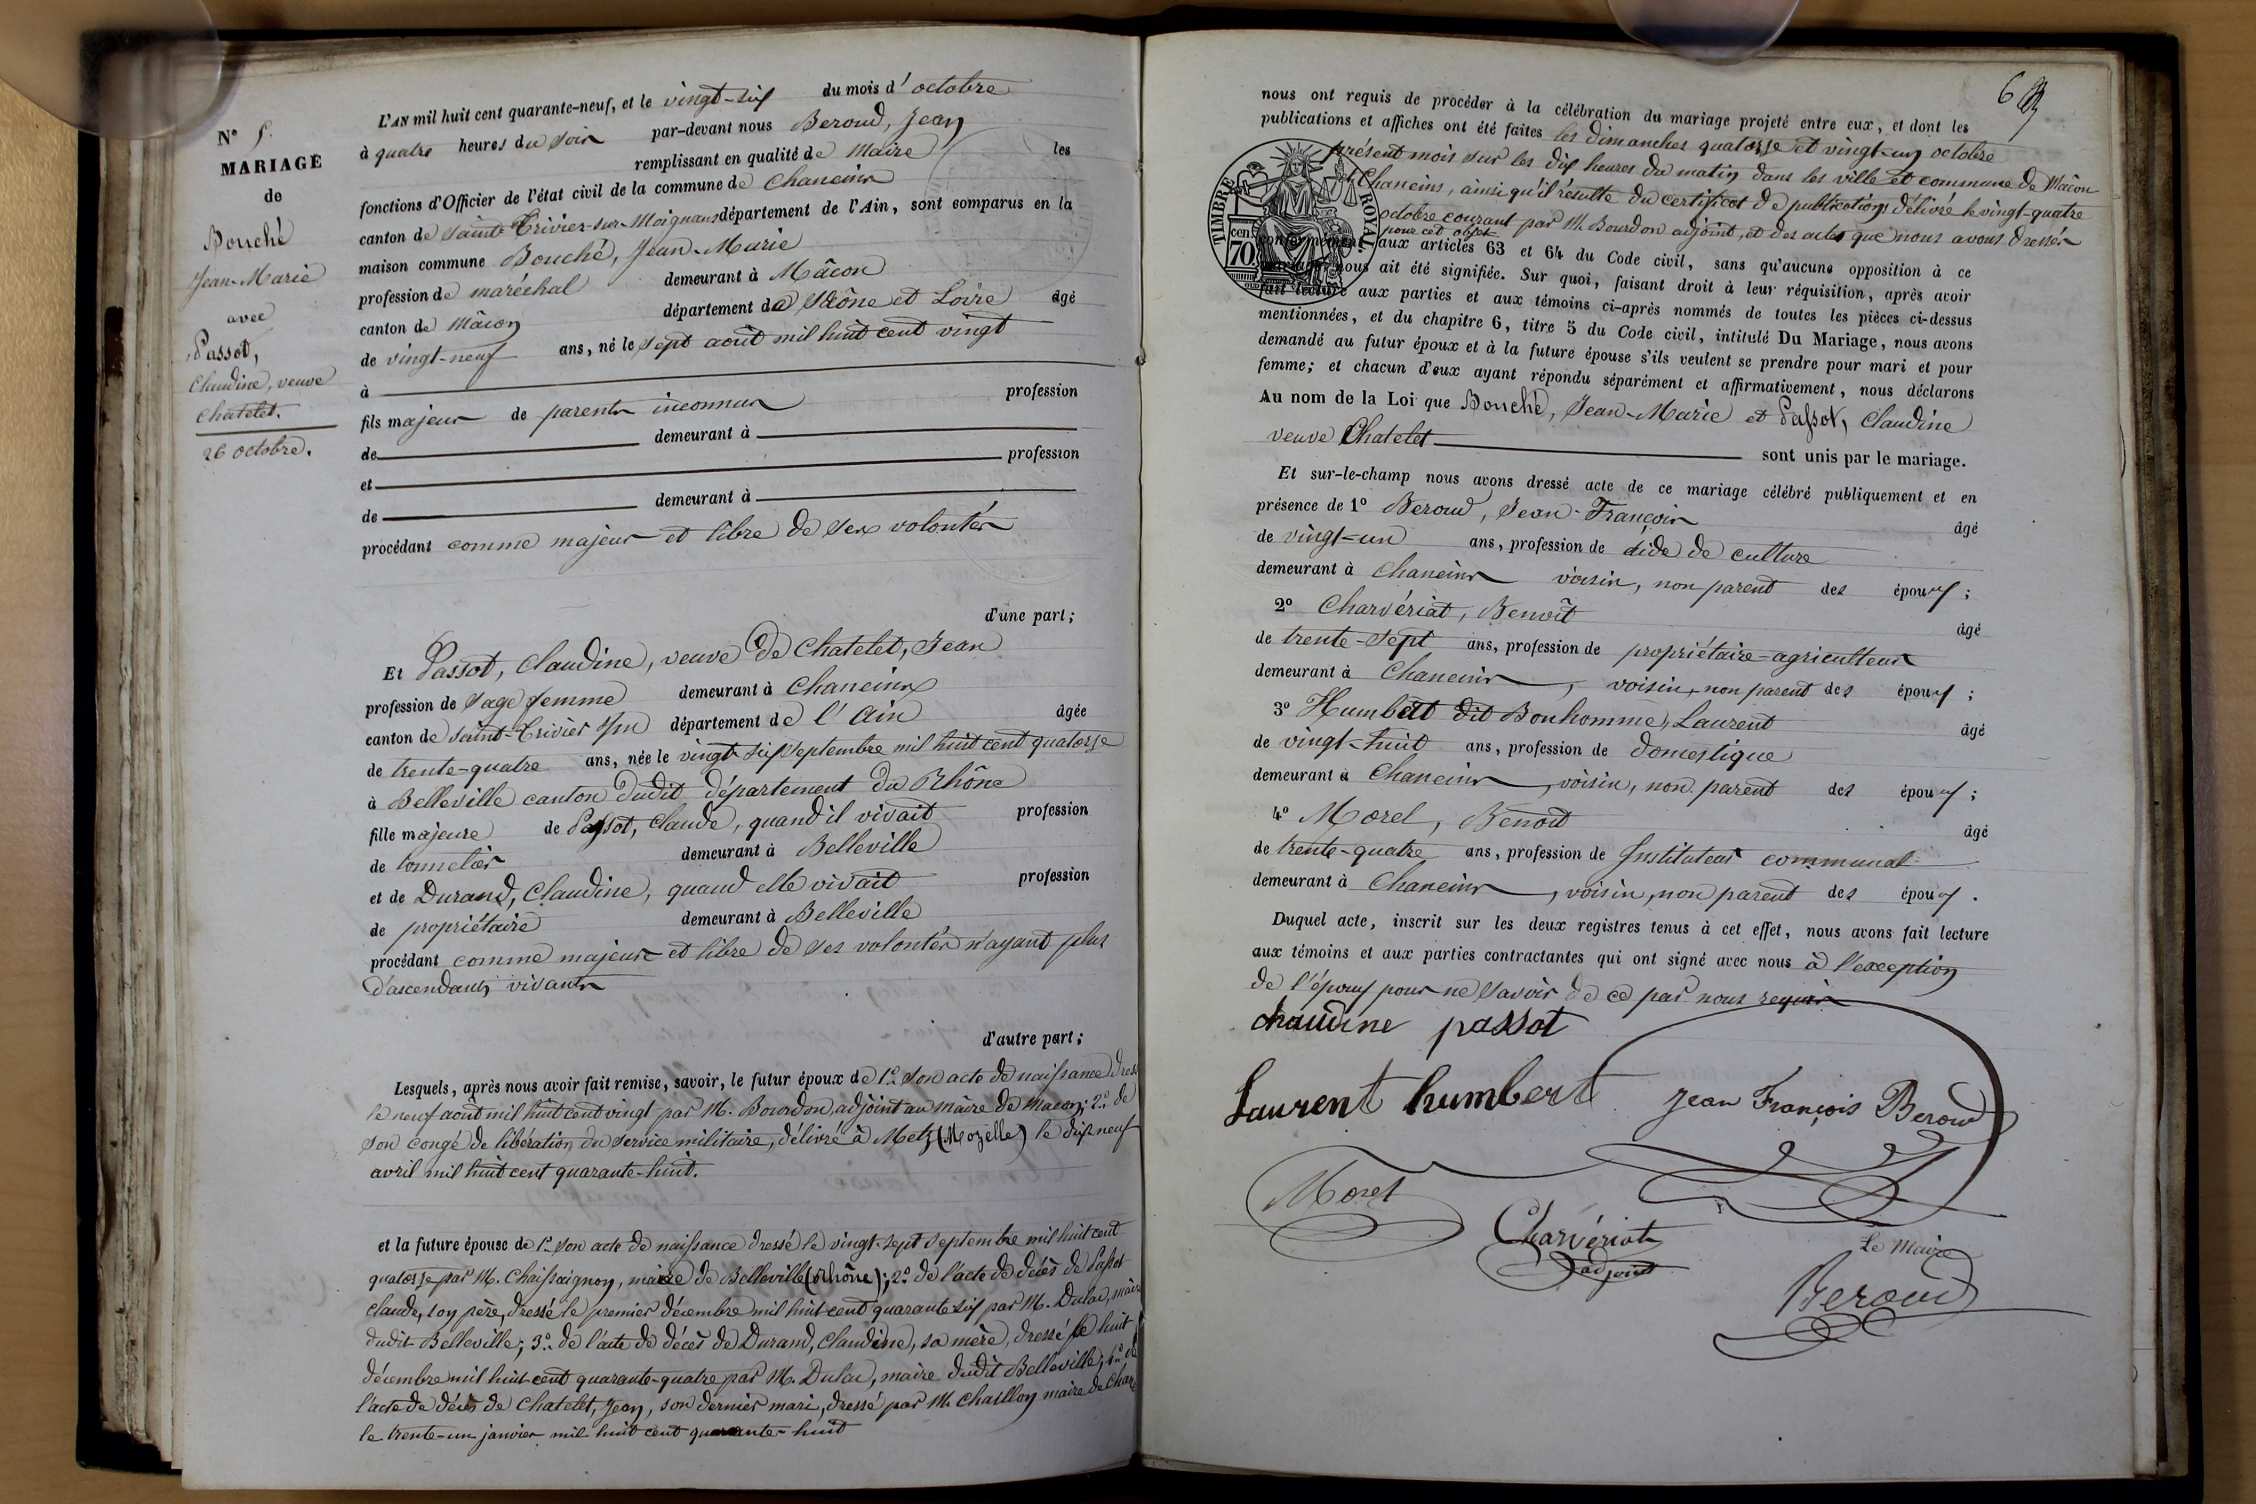 N° 5.
MARIAGE
de
Bouché
Jean-Marie
avec
Passot,
Claudine, veuve
Chatelet.
26 octobre.
L'AN mil huit cent quarante-neuf, et le vingt-six du mois d'octobre
à quatre heures du soir par-devant nous Beroud, Jean
remplissant en qualité de Maire les
fonctions d'Officier de l'état civil de la commune de Chaneins
canton de Saint Trivier-sur-Moignans département de l'Ain, sont comparus en la
maison commune Bouché, Jean-Marie
profession de maréchal demeurant à Mâcon
canton de Mâcon département de Saône et Loire âgé
de vingt-neuf ans, né le sept août mil huit cent vingt
à
fils majeur de parents inconnus profession
de demeurant à
et profession
de demeurant à
procédant comme majeur et libre de ses volontés
d'une part;
Et Passot, Claudine, veuve de Chatelet, Jean
profession de sage femme demeurant à Chaneins
canton de Saint-Trivier s/m département de l'Ain âgée
de trente-quatre ans, née le vingt six septembre mil huit cent quatorze
à Belleville canton dudit département du Rhône
fille majeure de Passot, Claude, quand il vivait profession
de tonnelier demeurant à Belleville
et de Durand, Claudine, quand elle vivait profession
de propriétaire demeurant à Belleville
procédant comme majeure et libre de ses volontés n'ayant plus
d'ascendants vivants
d'autre part;
Lesquels, après nous avoir fait remise, savoir, le futur époux de 1° son acte de naissance dressé
le neuf août mil huit cent vingt par M. Bourdon, adjoint au maire de Macon; 2° de
son congé de libération du service militaire, délivré à Metz (Mozelle) le dix neuf
avril mil huit cent quarante-huit.
et la future épouse de 1° son acte de naissance dressé le vingt-sept septembre mil huit cent
quatorze par M. Chaissaignon, maire de Belleville (Rhône); 2° de l'acte de décès de Passot
Claude, son père, dressé le premier décembre mil huit cent quarante six par M. Dulac, maire
dudit Belleville; 3° de l'acte de décès de Durand, Claudine, sa mère, dressé le huit
décembre mil huit cent quarante-quatre par M. Dulac, maire dudit Belleville; 4° de
l'acte de décès de Chatelet, Jean, son dernier mari, dressé par M. Chaillon maire de Chan
le trente-un janvier mil huit cent quarante-huit
6
nous ont requis de procéder à la célébration du mariage projeté entre eux, et dont les
publications et affiches ont été faites les dimanches quatorze et vingt-un octobre
présent mois sur les dix heures du matin dans les ville et commune de Macon
et Chaneins, ainsi qu'il résulte du certificat de publications délivré le vingt-quatre
octobre courant par M. Bourdon adjoint, et des actes que nous avons dressés
pour cet objet
conformément aux articles 63 et 64 du Code civil, sans qu'aucune opposition à ce
mariage nous ait été signifiée. Sur quoi, faisant droit à leur réquisition, après avoir
fait lecture aux parties et aux témoins ci-après nommés de toutes les pièces ci-dessus
mentionnées, et du chapitre 6, titre 5 du Code civil, intitulé Du Mariage, nous avons
demandé au futur époux et à la future épouse s'ils veulent se prendre pour mari et pour
femme; et chacun d'eux ayant répondu séparément et affirmativement, nous déclarons
Au nom de la Loi que Bouché, Jean-Marie et Passot, Claudine
veuve Chatelet sont unis par le mariage.
TIMBRE ROYAL
70 cen.
Et sur-le-champ nous avons dressé acte de ce mariage célébré publiquement et en
présence de 1° Beroud, Jean-François âgé
de vingt-un ans, profession de aide de culture
demeurant à Chaneins voisin, non parent des époux;
2° Charvériat, Benoît âgé
de trente-sept ans, profession de propriétaire-agriculteur
demeurant à Chaneins, voisin, non parent des époux;
3° Humbert dit Bonhomme, Laurent âgé
de vingt-huit ans, profession de domestique
demeurant à Chaneins, voisin, non parent des époux;
4° Morel, Benoît âgé
de trente-quatre ans, profession de Instituteur communal
demeurant à Chaneins, voisin, non parent des époux.
Duquel acte, inscrit sur les deux registres tenus à cet effet, nous avons fait lecture
aux témoins et aux parties contractantes qui ont signé avec nous à l'exception
de l'époux pour ne savoir de ce par nous requis
claudine passot
Laurent humbert Jean François Beroud
Morel
Charvériat
adjoint
Le Maire
Beroud